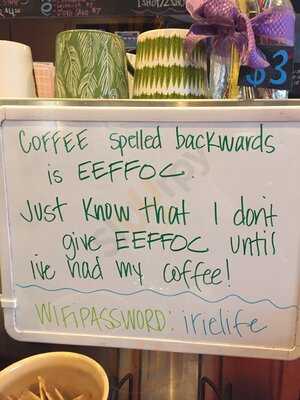 COFFEE spelled backwards
is EEFFOC.
Just know that I don't
give EEFFOC until
i've had my coffee!
WiFi PASSWORD: irielife
$3